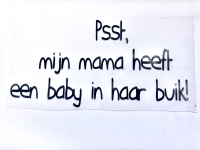 Psst,
mijn mama heeft
een baby in haar buik!